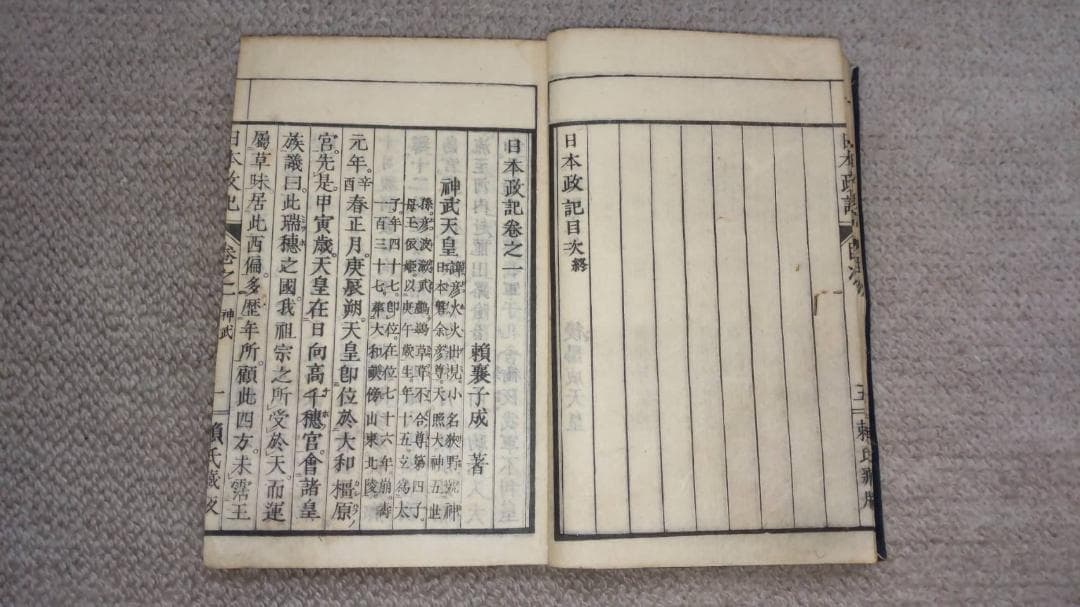 日本政記目次終
日本政記卷之一
賴襄子成 著
神武天皇 諱彦火火出見小名狹野號神
日本磐余彦尊天照大神五世
孫彦波瀲武鸕鷀草葺不合尊第四子
母玉依姬以庚午歲生年十五立爲太
子年四十七即位在位七十六年崩壽
百三十七葬大和畝傍山東北陵
元年辛酉春正月庚辰朔天皇即位於大和橿原
宮先是甲寅歲天皇在日向高千穗宮會諸皇
族議曰此瑞穗之國我祖宗之所受於天而運
屬草昧居此西偏多歷年所顧此四方未霑王
日本政記
卷之一
神武
一
賴氏藏版
日本政記
五
賴氏藏版